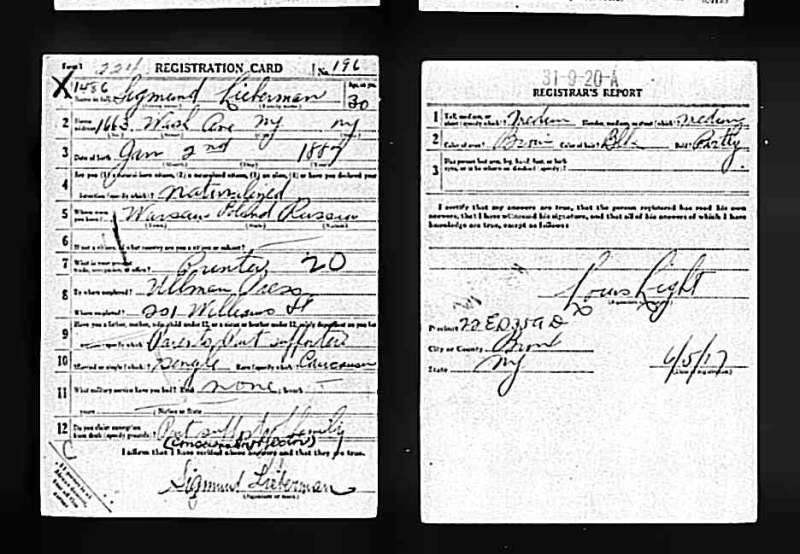 Form 1 REGISTRATION CARD No. 196
X 1486
Name in full Sigmund Lieberman Age, in yrs. 30
2 Home address 1663 Wash Ave NY NY
3 Date of birth Jan 2nd 1887
4 Are you (1) a natural born citizen, (2) a naturalized citizen, (3) an alien, (4) or have you declared your
intention (specify which)? Naturalized
5 Where were you born? Warsaw Poland Russia
(Town) (State) (Nation)
6 If not a citizen, of what country are you a citizen or subject?
7 What is your present trade, occupation, or office? Printer 20
8 By whom employed? Ullman Press
Where employed? 251 William St
9 Have you a father, mother, wife, child under 12, or a sister or brother under 12, solely dependent on you for
support (specify which)? Parents, Part supporter
10 Married or single (which)? Single Race (specify which)? Caucasian
11 What military service have you had? Rank none branch
years Nation or State
12 Do you claim exemption from draft (specify grounds)? Part support of family
I affirm that I have verified above answers and that they are true.
Sigmund Lieberman
(Signature or mark)
31-9-20-A
REGISTRAR'S REPORT
1 Tall, medium, or short (specify which)? Medium Slender, medium, or stout (which)? Medium
2 Color of eyes? Brown Color of hair? Blk Bald? Partly
3 Has person lost arm, leg, hand, foot, or both
eyes, or is he otherwise disabled (specify)?
I certify that my answers are true, that the person registered has read his own
answers, that I have witnessed his signature, and that all of his answers of which I have
knowledge are true, except as follows:
Louis Light
(Signature of registrar)
Precinct 22 ED 35 AD
City or County Bronx
State NY 6/5/17
(Date of registration)